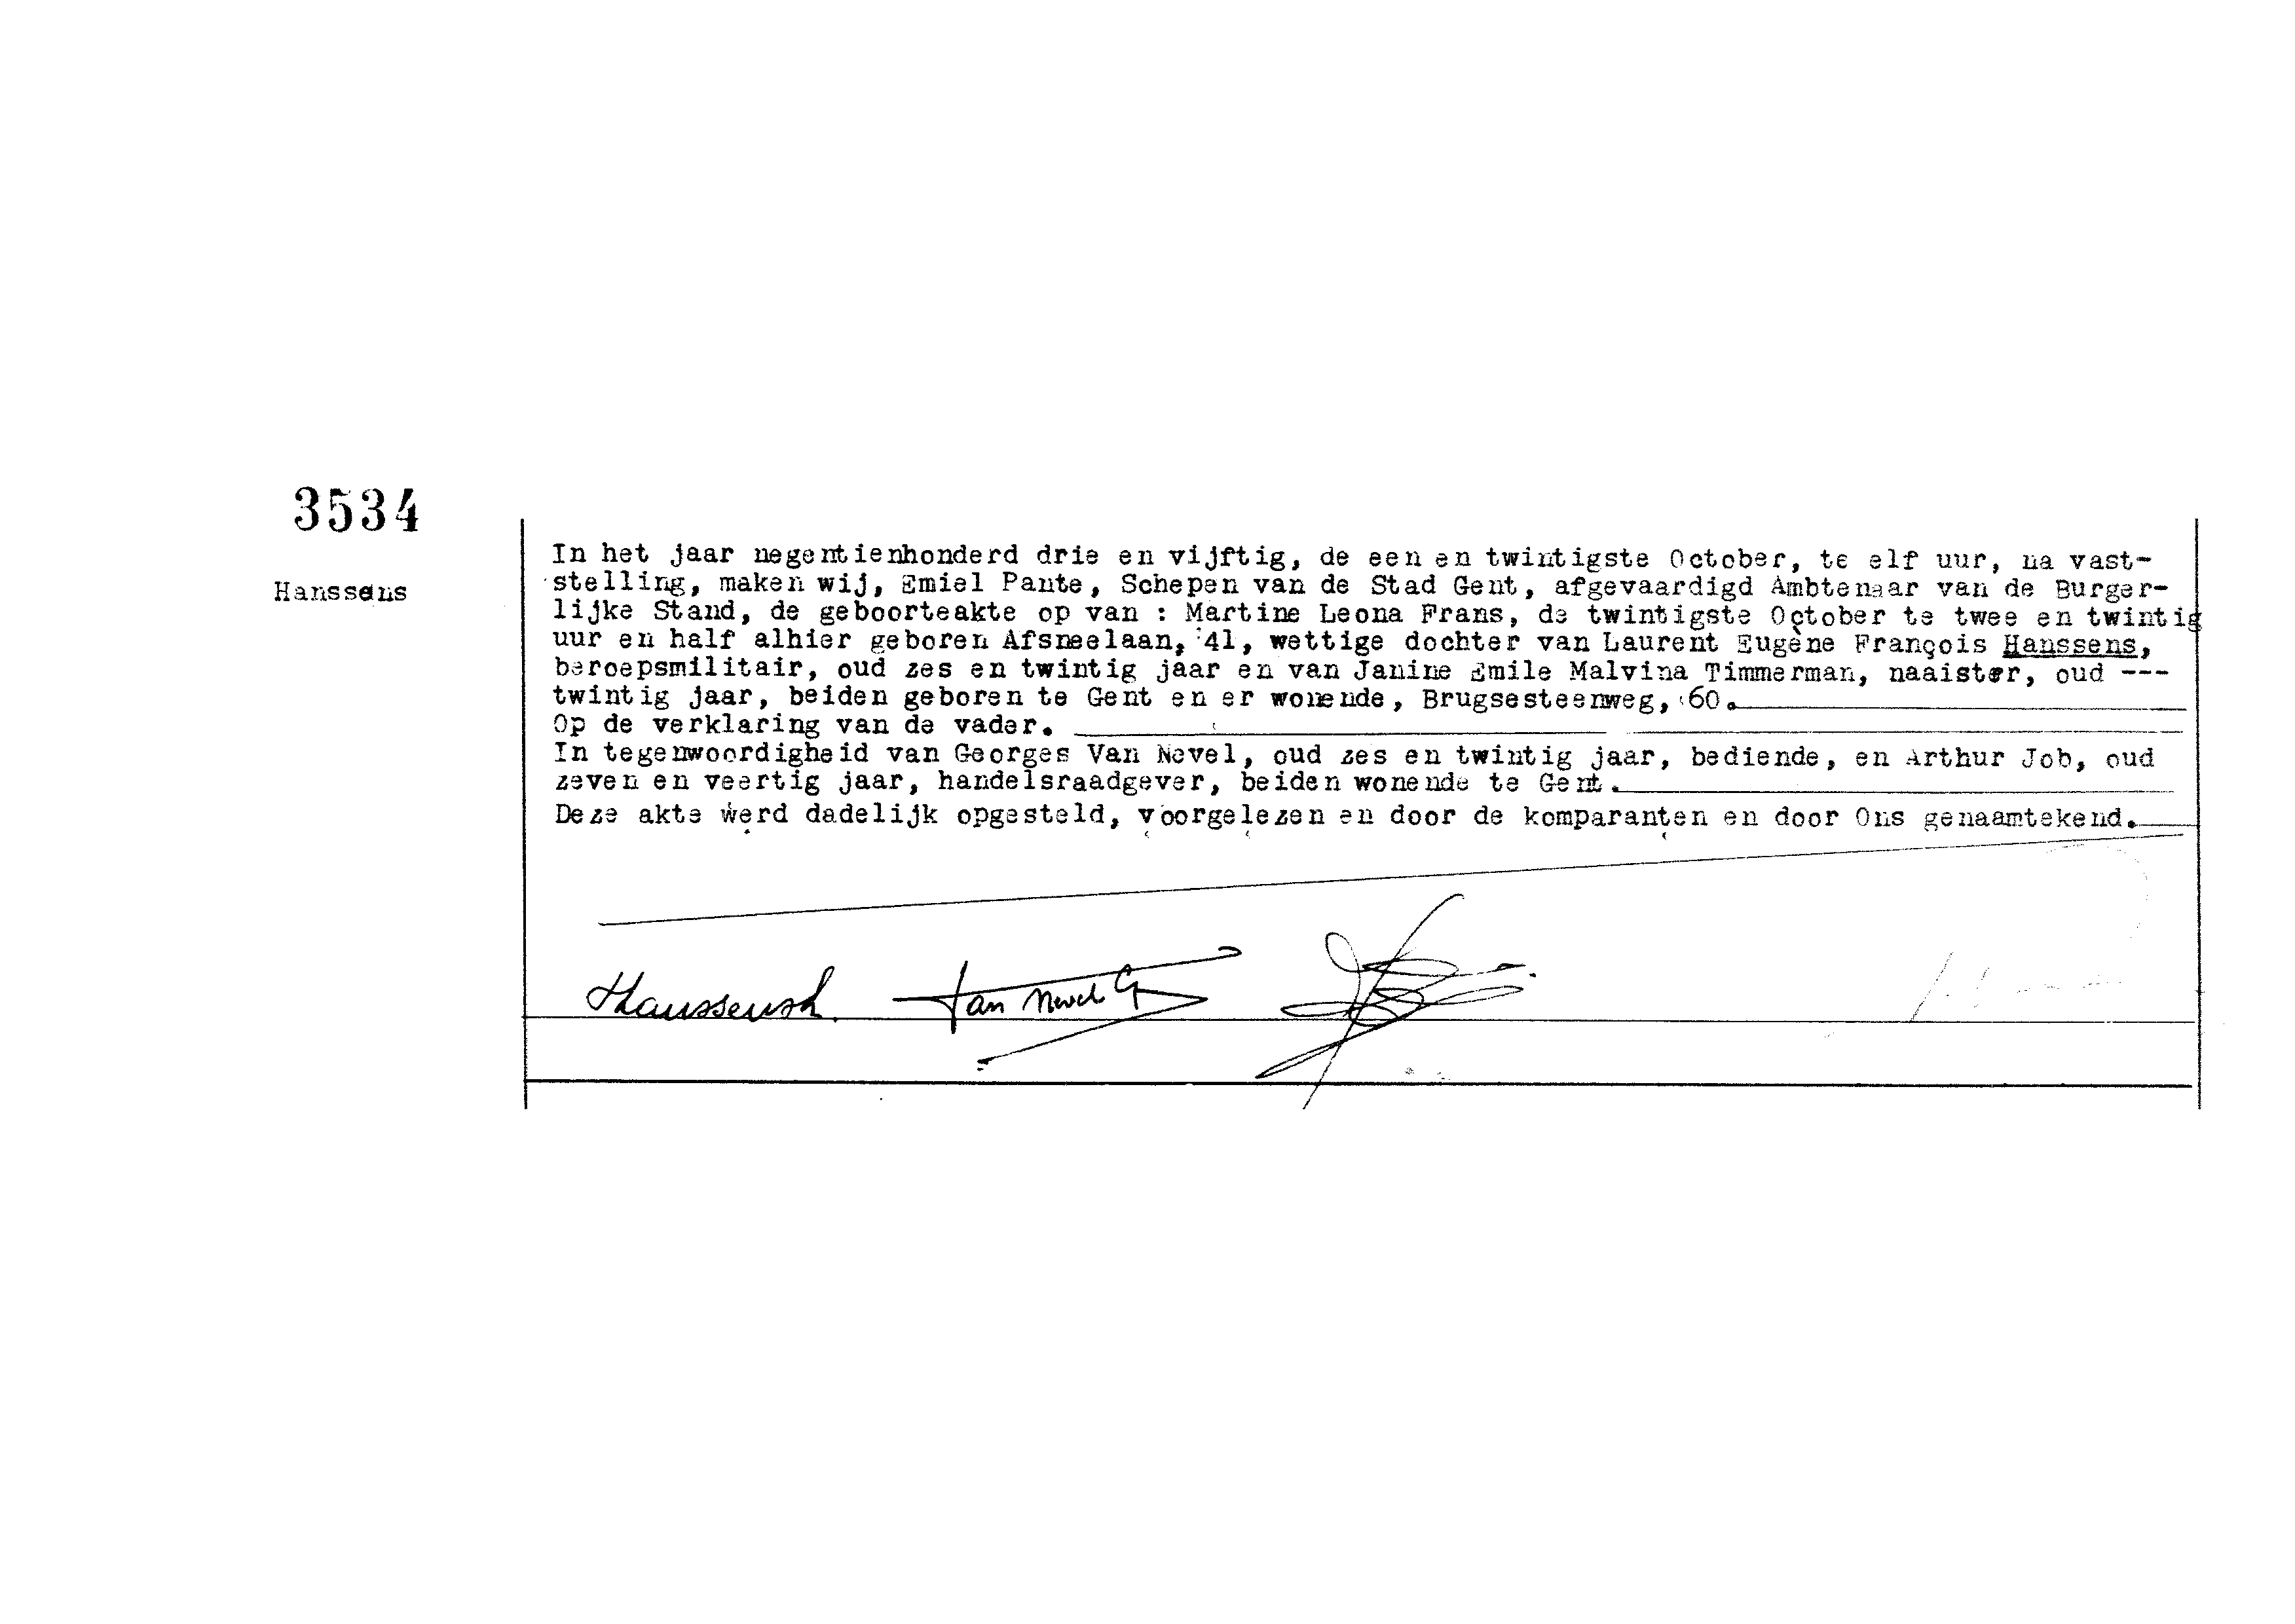 3534
Hanssens
In het jaar negentienhonderd drie en vijftig, de een en twintigste October, te elf uur, na vast-
stelling, maken wij, Emiel Pante, Schepen van de Stad Gent, afgevaardigd Ambtenaar van de Burger-
lijke Stand, de geboorteakte op van : Martine Leona Frans, de twintigste October te twee en twintig
uur en half alhier geboren Afsneelaan, 41, wettige dochter van Laurent Eugène François Hanssens,
beroepsmilitair, oud zes en twintig jaar en van Janine Emile Malvina Timmerman, naaister, oud ---
twintig jaar, beiden geboren te Gent en er wonende, Brugsesteenweg, 60.
Op de verklaring van de vader.
In tegenwoordigheid van Georges Van Nevel, oud zes en twintig jaar, bediende, en Arthur Job, oud
zeven en veertig jaar, handelsraadgever, beiden wonende te Gent.
Deze akte werd dadelijk opgesteld, voorgelezen en door de komparanten en door Ons genaamtekend.
Van Nevel G